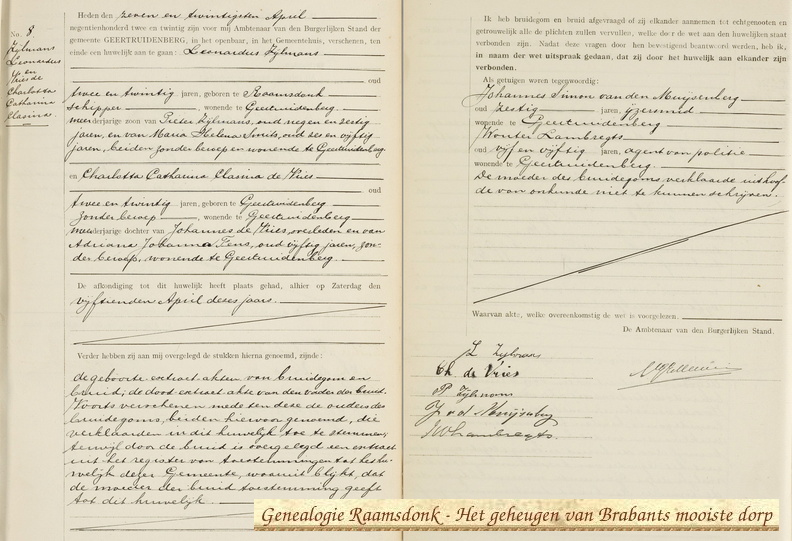 No. 8
Zijlmans
Leonardus
en
Vries de
Charlotta
Catharina
Clasina.
Heden den zeven en twintigsten April
negentienhonderd twee en twintig zijn voor mij Ambtenaar van den Burgerlijken Stand der
gemeente GEERTRUIDENBERG, in het openbaar, in het Gemeentehuis, verschenen, ten
einde een huwelijk aan te gaan: Leonardus Zijlmans
oud
twee en twintig jaren, geboren te Raamsdonk
schipper, wonende te Geertruidenberg.
meerderjarige zoon van Pieter Zijlmans, oud negen en zestig
jaren, en van Maria Heelena Smits, oud zes en vijftig
jaren, beiden zonder beroep en wonende te Geertruidenberg
en Charlotta Catharina Clasina de Vries
oud
twee en twintig jaren, geboren te Geertruidenberg
zonder beroep, wonende te Geertruidenberg
meerderjarige dochter van Johannes de Vries, overleden en van
Adriana Johanna Fens, oud vijftig jaren, zon-
der beroep, wonende te Geertruidenberg.
De afkondiging tot dit huwelijk heeft plaats gehad, alhier op Zaterdag den
vijftienden April dezes jaars.
Verder hebben zij aan mij overgelegd de stukken hierna genoemd, zijnde:
de geboorte extract akten van bruidegom en
bruid; de dood extract akte van den vader der bruid.
Voorts verschenen mede ten deze de ouders des
bruidegoms, beiden hiervoor genoemd, die
verklaarden in dit huwelijk toe te stemmen;
terwijl door de bruid is overgelegd een extract
uit het register van toestemmingen tot het hu-
welijk dezer Gemeente, waaruit blijkt, dat
de moeder der bruid toestemming geeft
tot dit huwelijk.
Ik heb bruidegom en bruid afgevraagd of zij elkander aannemen tot echtgenooten en
getrouwelijk alle de plichten zullen vervullen, welke door de wet aan den huwelijken staat
verbonden zijn. Nadat deze vragen door hen bevestigend beantwoord werden, heb ik,
in naam der wet uitspraak gedaan, dat zij door het huwelijk aan elkander zijn
verbonden.
Als getuigen waren tegenwoordig:
Johannes Simon van den Muijsenberg
oud zestig jaren, ijzersmid
wonende te Geertruidenberg
Wouter Lambregts
oud vijf en vijftig jaren, agent van politie
wonende te Geertruidenberg.
De moeder des bruidegoms verklaarde uit hoof-
de van onkunde niet te kunnen schrijven.
Waarvan akte, welke overeenkomstig de wet is voorgelezen.
De Ambtenaar van den Burgerlijken Stand.
L Zijlmans
Ch. de Vries
P Zijlmans
J v d Muijsenberg
W Lambregts
Genealogie Raamsdonk - Het geheugen van Brabants mooiste dorp